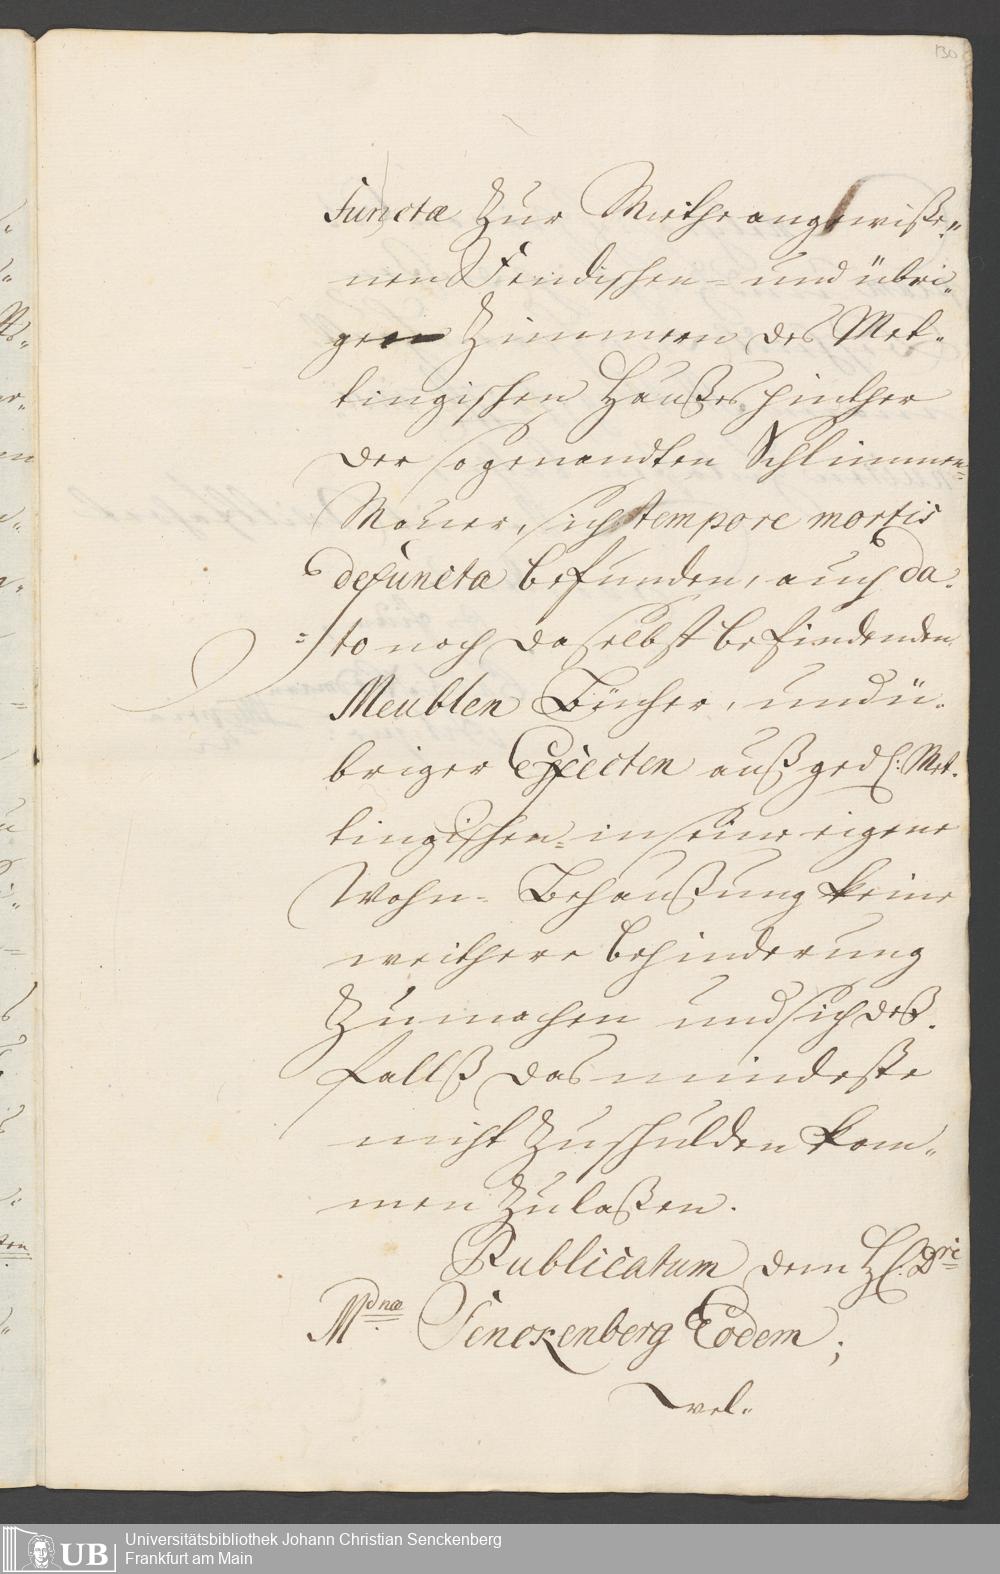 130
functæ zur Miethe angewiße„
nen Fendischen- und übri„
gen Zimmern des Met-
tingischen Haußes hinther
der sogenandten Schlimmen-
Mauer, sich tempore mortis
defunctæ befunden, auch da-
to noch daselbst befindenden
Meublen Bücher, und ü-
briger Effecten auß gedl: Met-
tingischen- in seine eigene
Wohn- Behaußung keine
weithere behinderung
zu machen und sich deß-
fallß das mindeste
nicht zu schulden kom„
men zu laßen.
Publicatum dem H. Dri
Mdnæ Senckenberg Eodem;
wel-
UB Universitätsbibliothek Johann Christian Senckenberg
Frankfurt am Main